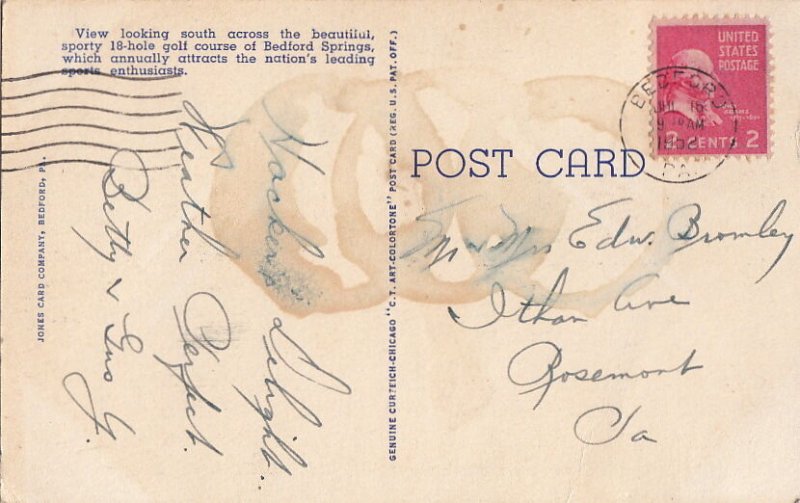 View looking south across the beautiful,
sporty 18-hole golf course of Bedford Springs,
which annually attracts the nation's leading
sports enthusiasts.
Hackers Delight.
Weather Perfect.
Betty & Geo G.
JONES CARD COMPANY, BEDFORD, PA.
GENUINE CURTEICH-CHICAGO "C. T. ART-COLORTONE" POST CARD (REG. U. S. PAT. OFF.)
POST CARD
UNITED
STATES
POSTAGE
2 CENTS 2
BEDFORD
9 AM
PA.
Mr & Mrs Edw. Bromley
Ithan Ave
Rosemont
Pa